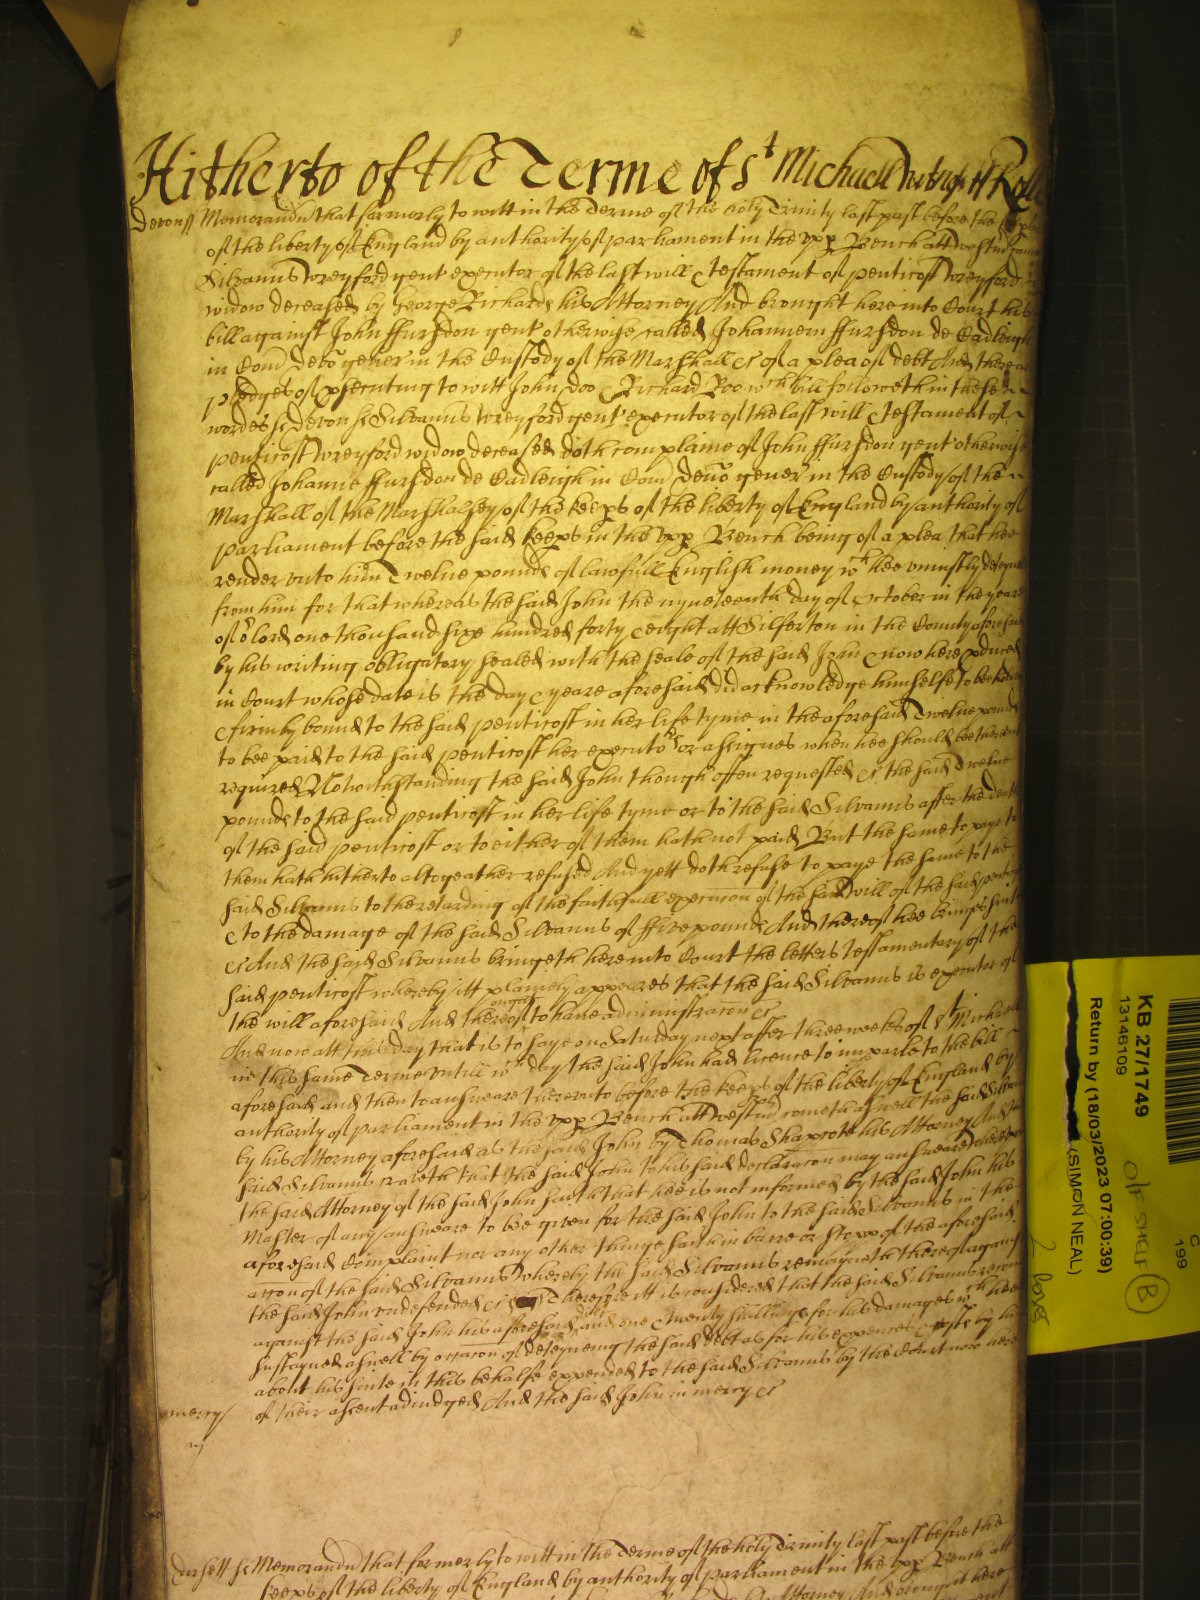 Hitherto of the Terme of St Michaell
Devon ss Memorandu that formerly to witt in the Terme of the holy Trinity last past before the
of the liberty of England by authority of parliament in the upp Bench att Westm
Silvanus Wreyford gent executor of the last will & Testament of Penticost Wreyford
widow deceased by George Richards his Attorney And brought here into Court his
bill against John ffursdon gent otherwise called Johannem ffursdon de Cadleigh
in Com Devon gener in the Custody of the Marshall &c of a plea of debt And there
pledges of psecuting to witt John Doo & Richard Roo wch bill followeth in these
wordes ss Devon ss Silvanus Wreyford gent executor of the last will & testament of
Penticost Wreyford widow deceased doth complaine of John ffursdon gent otherwise
called Johanne ffursdon de Cadleigh in Com Devon gener in the Custody of the
Marshall of the Marshalsey of the keeps of the liberty of England by authority of
parliament before the said keeps in the upp Bench being of a plea that hee
render unto him Twelve pounds of lawfull English money wch hee uniustly
from him for that whereas the said John the nyneteenth day of October in the yeare
of or lord one thousand six hundred forty & eight att Silferton in the County aforesaid
by his writing obligatory sealed with the seale of the said John & now here pduced
in Court whose date is the day & yeare aforesaid did acknowledge himselfe to bee
& firmly bound to the said Penticost in her life tyme in the aforesaid Twelve pounds
to bee paid to the said Penticost her executors or assignes when hee should bee thereunto
required Notwithstanding the said John though often requested &c the said Twelve
pounds to the said Penticost in her life tyme or to the said Silvanus after the death
of the said Penticost or to either of them hath not paid But the same to paye to
them hath hitherto altogeather refused And yett doth refuse to paye the same to the
said Silvanus to the retarding of the faithfull execucon of the said will of the said
& to the damage of the said Silvanus of ffive pounds And thereof hee brings suit
&c And the said Silvanus bringeth here into Court the letters Testamentary of the
said Penticost whereby itt plainely appeares that the said Silvanus is executor of
the will aforesaid And thereof ought to have administracon &c
And now att this day that is to saye on Saturday next after three weekes of St Michaell
in this same Terme untill wch day the said John had licence to imparle to the bill
aforesaid and then to answeare thereunto before the keeps of the liberty of England by
authority of parliament in the upp Bench att Westm cometh aswell the said Silvanus
by his Attorney aforesaid as the said John by Thomas Shapcote his Attorney And the
said Silvanus craveth that the said John to his said declaracon may answeare
the said Attorney of the said John saith that hee is not informed by the said John his
Master of any answeare to bee given for the said John to the said Silvanus in the
aforesaid Complaint nor any other thinge saith in barre or of the aforesaid
accon of the said Silvanus Whereby the said Silvanus remayneth thereof against
the said John undefended &c Therefore itt is considered that the said Silvanus recover
against the said John his aforesaid debt and one & twenty shillings for his damages wch hee
sustayned aswell by occacon of deteyneing the said debt as for his expences & costs by him
about his suite in this behalfe expended to the said Silvanus by the Court now here
of their assent adiudged And the said John in mercy &c
mercy
Dorsett ss Memorandu that formerly to witt in the Terme of the holy Trinity last past before the
keeps of the liberty of England by authority of parliament in the upp Bench att
Attorney And brought here
KB 27/1749
13146109
Return by (18/03/2023 07:00:39)
(SIMON NEAL)
O/F SHELF B
2 boxes
C
199